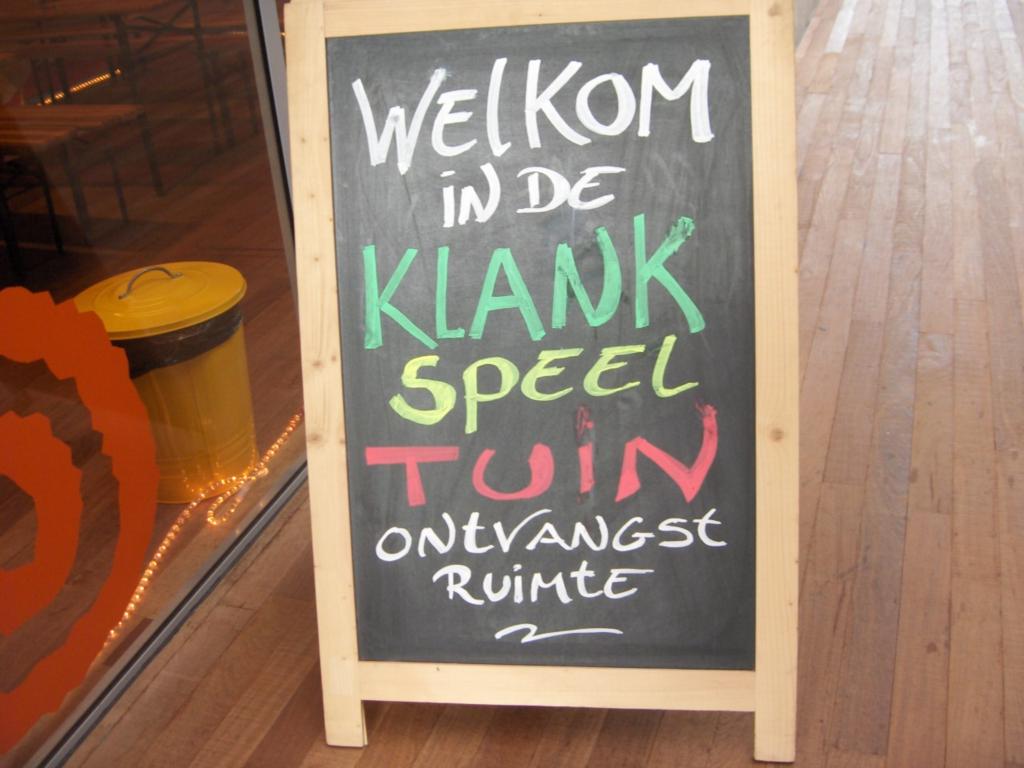 WELKOM
IN DE
KLANK
SPEEL
TUIN
ONTVANGST
RUIMTE